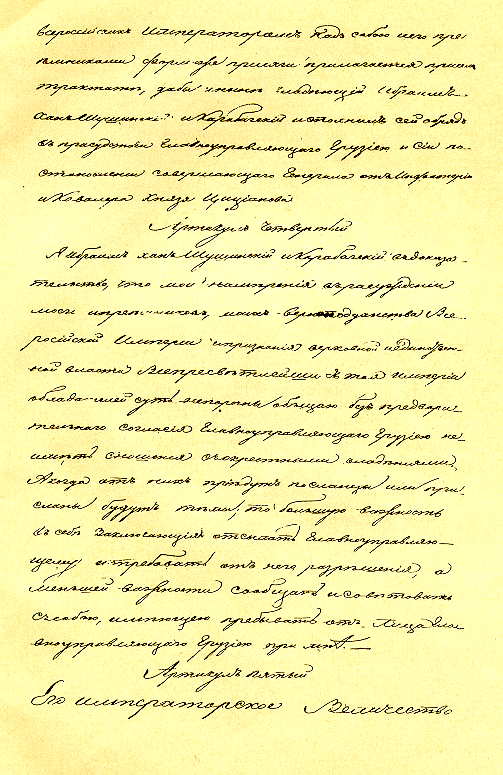 всероссийских Императоров надъ собою и его пре-
емниками форм-ою присяги прилагается при сем
трактатѣ, дабы нынѣ владѣющій Ибраимъ
Ханъ Шушинскій и Карабагскій исполнилъ сей обрядъ
въ присудствіи Главноуправляющаго Грузіею и сіи по-
становленіи совершающаго Генерала отъ Инфантеріи
и Ковалера Князя Циціанова
Артикулъ Четвертый
Я Ибраимъ ханъ Шушинскій и Карабагскій въ доказа-
тельство, что мои намѣренія въ разсужденіи
моего и преемниковъ моихъ верноподданства Все-
россійской Имперіи и признанія верховной и единствен-
ной власти Всепресветлейшихъ той Имперіи
облада-телей суть непорочны обещаю безъ предвари-
тельного согласія Главноуправляющаго Грузіею не
имѣть сношенія съ окрестными владѣлцами,
А когда отъ нихъ пріѣдутъ посланцы или при-
сланы будутъ письма, то большую важность
въ себѣ заключающія отсылать Главноуправляю-
щему и требовать отъ него разрѣшенія, а
меньшей важности сообщать и совѣтовать
съ особою, имѣющею пребывать отъ лица Гла-
вноуправляющаго Грузіею при мнѣ.—
Артикулъ пятый
Его императорское Величество